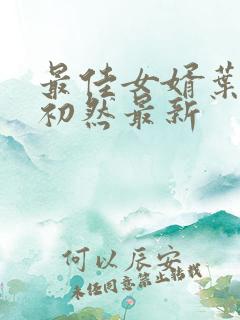 最佳女婿葉
初然最新
何以辰安
未经同意禁止转载